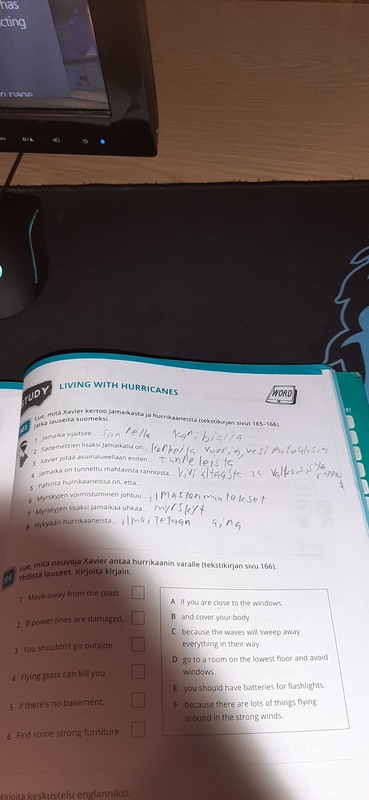 has
cting
STUDY
LIVING WITH HURRICANES
WORD
Lue, mitä Xavier kertoo Jamaikasta ja hurrikaaneista (tekstikirjan sivut 165-166).
Jatka lauseita suomeksi.
1 Jamaika sijaitsee...
2 Sademetsien lisäksi Jamaikalla on... korkeita vuoria, vesiputouksen
3 Xavier pitää asuinalueellaan eniten... tunteleista
4 Jamaika on tunnettu mahtavista rannoista...
5 Pahinta hurrikaaneissa on, että...
6 Myrskyjen voimistuminen johtuu... ilmaston muutokset
7 Myrskyjen lisäksi Jamaikaa uhkaa... myrskyt
8 Nykyään hurrikaaneista... ilmoitetaan aina
Lue, mitä neuvoja Xavier antaa hurrikaanin varalle (tekstikirjan sivu 166).
Yhdistä lauseet. Kirjoita kirjain.
1 Move away from the coast
2 If power lines are damaged,
3 You shouldn't go outside
4 Flying glass can kill you
5 If there's no basement,
6 Find some strong furniture
A if you are close to the windows.
B and cover your body.
C because the waves will sweep away
everything in their way.
D go to a room on the lowest floor and avoid
windows.
E you should have batteries for flashlights.
F because there are lots of things flying
around in the strong winds.
Kirjoita keskustelu englanniksi.